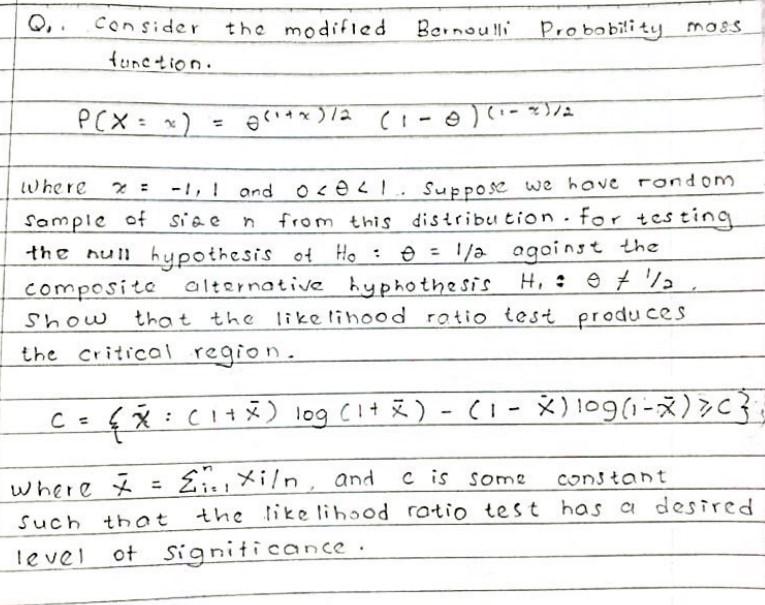 Q1. Consider the modified Bernoulli Probability mass
function.
P(X = x) = θ^((1+x)/2) (1 - θ)^((1-x)/2)
where x = -1, 1 and 0<θ<1. Suppose we have random
sample of size n from this distribution. for testing
the null hypothesis of H₀ : θ = 1/2 against the
composite alternative hyphothesis H₁ : θ ≠ 1/2,
Show that the likelihood ratio test produces
the critical region.
C = { x̄ : (1+x̄) log (1+x̄) - (1-x̄) log(1-x̄) ≥ C };
where x̄ = Σⁿᵢ₌₁ Xi/n, and c is some constant
such that the likelihood ratio test has a desired
level of significance.